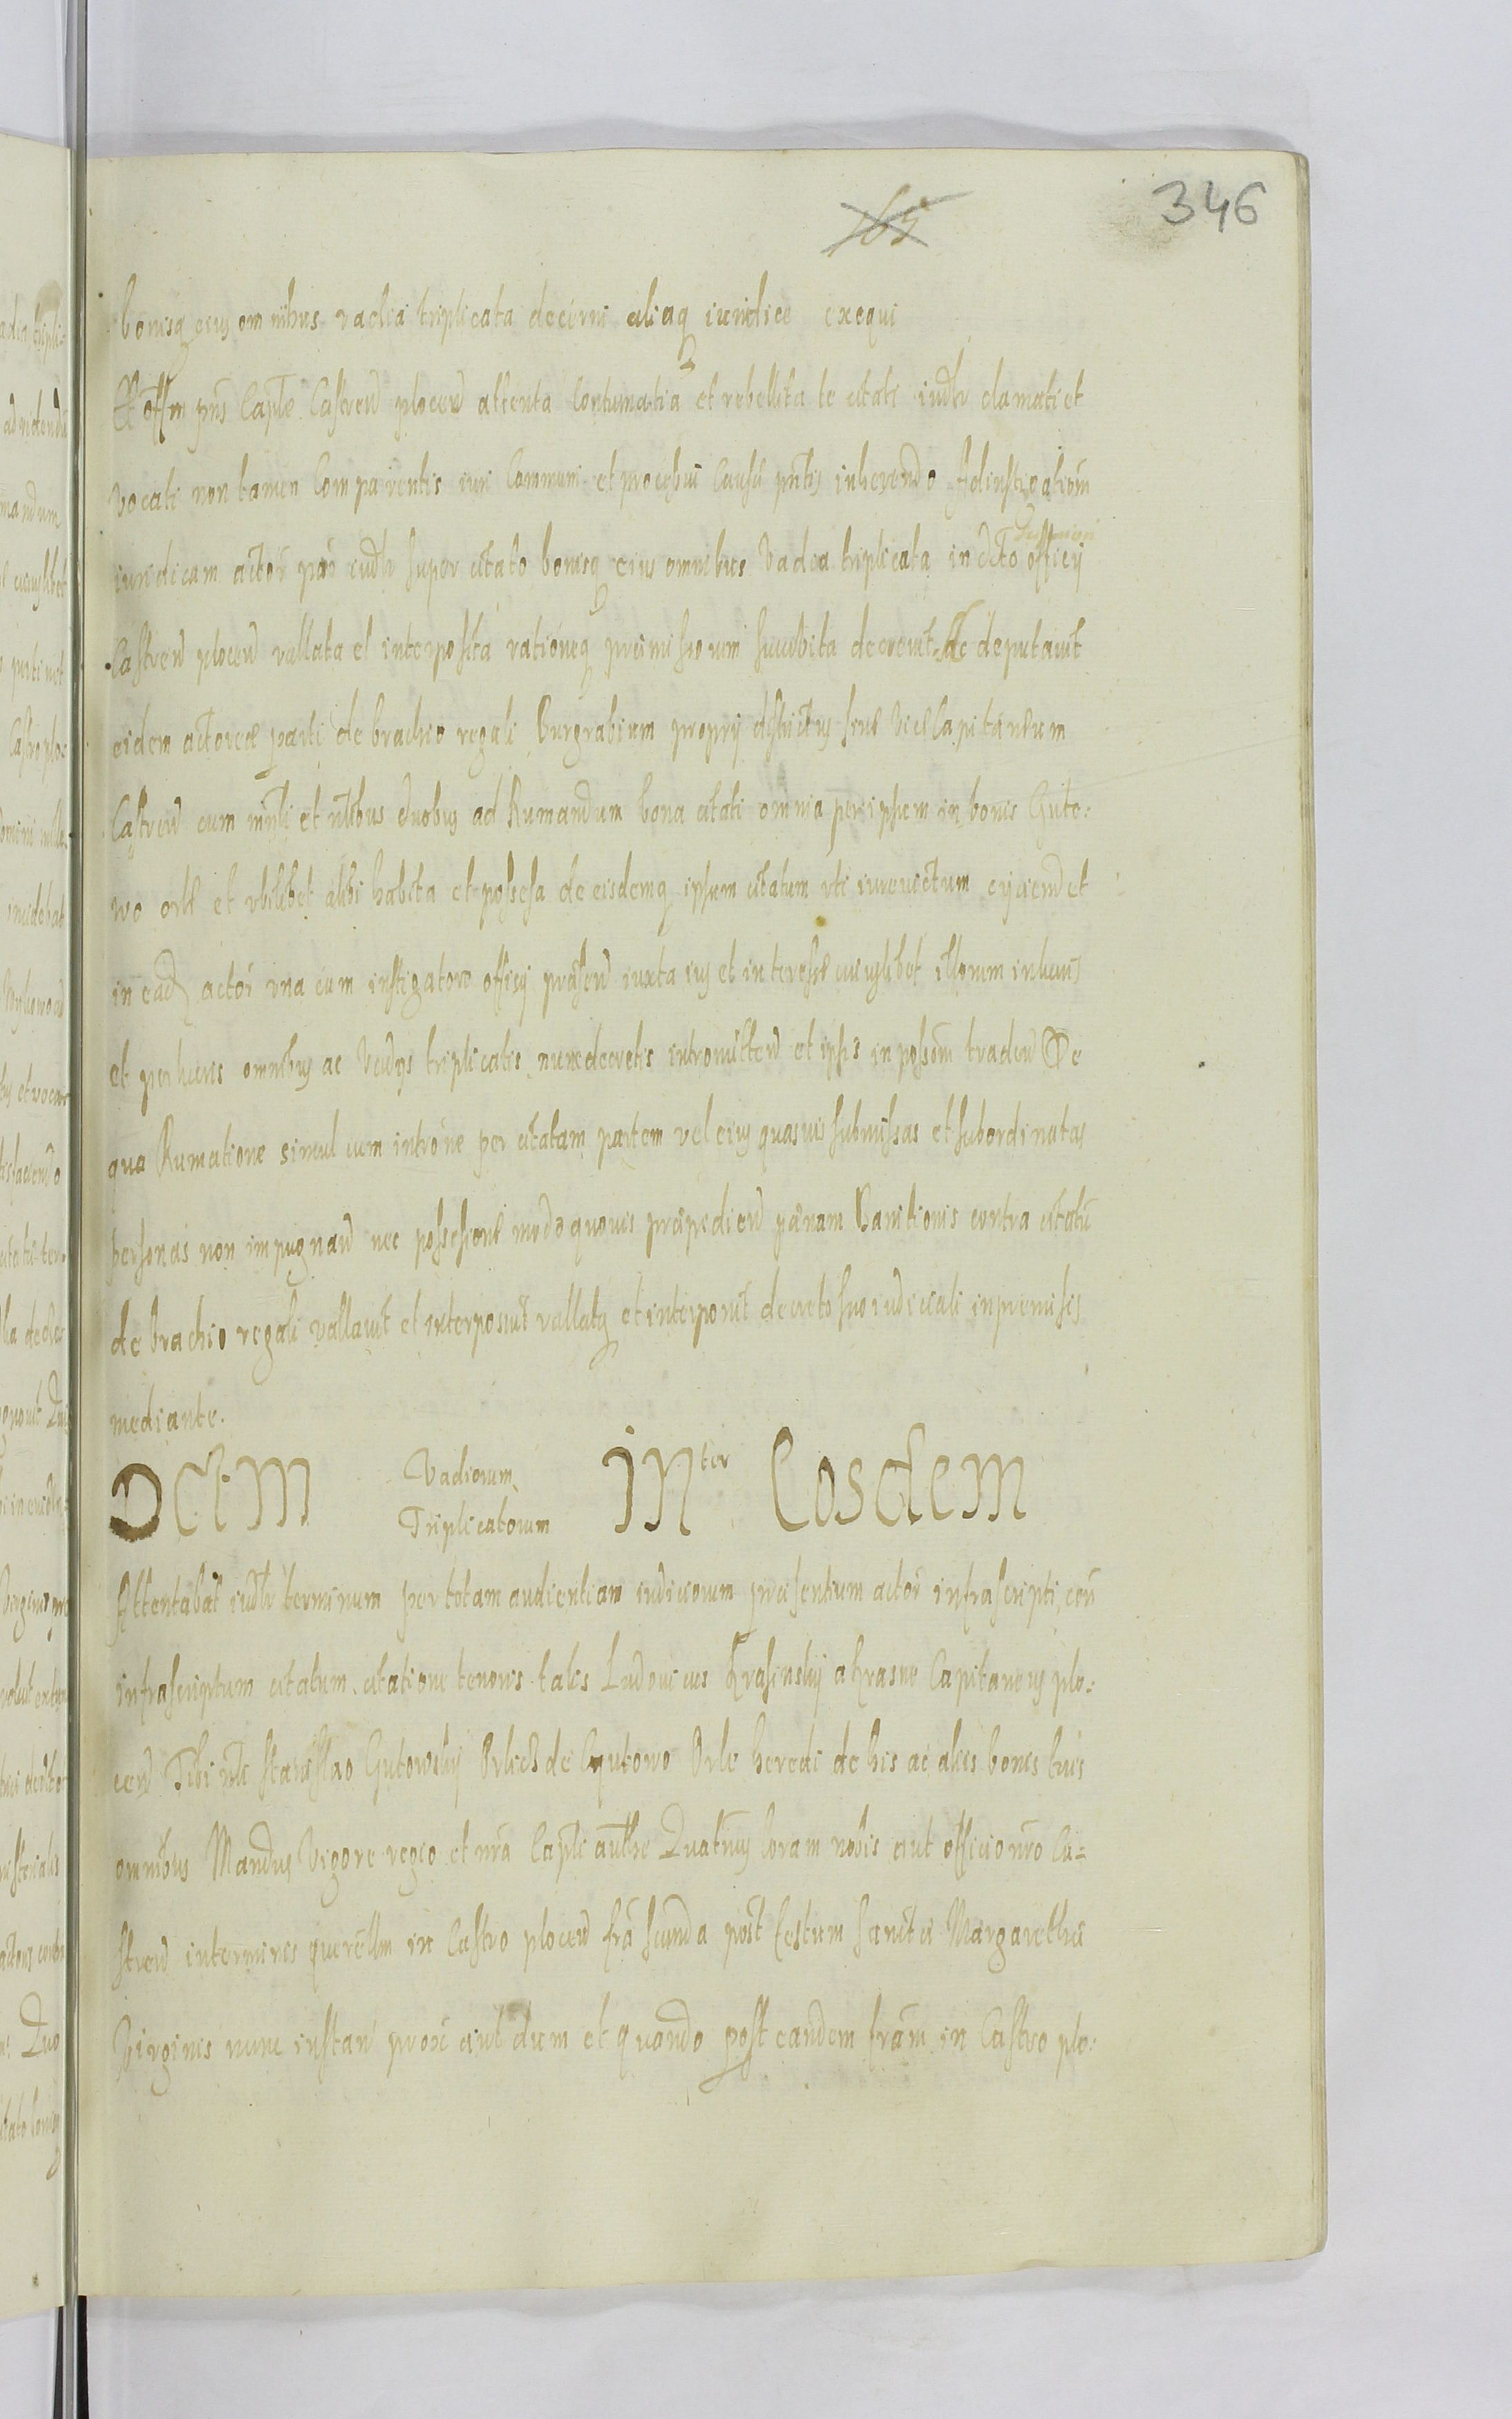 165
346
bonisq eius omnibus vadia triplicata decerni aliaq iuridice exequi
Et offm pns Caple Castren plocen attenta contumatia et rebellita te citati iudtr clamati et
vocati non tamen Comparentis iuri Communi et processui Causæ pntis inherendo Adinstroatiom
iuridicam actor iudtr super citato bonisq eius omnibus Vadia triplicata in dcto officij
Castren plocen vallata et interposita rationeq præmissorum succubita decrevit deputavit
eidem actoreæ parti de brachio regali Burgrabium proprij districtus sive Vice Capitaneum
Castren cum mnli et nlibus duobus ad Rumandum bona citati omnia per ipsum in bonis Guto:
wo orle et vbilibet alibi habita et possessa de eisdemq ipsum citatum vti iurevictum eijciend et
in ead actor vna cum instigatore officij præsen iuxta ius et interesse cuiuslibet illorum in lucris
et perlucris omnibus ac Vadijs triplicatis nunc decretis intromitten et ipsis in possom traden De
qua Rumatione simul cum introne per citatam partem vel eius quasuis submissas et subordinatas
personas non impugnan nec possessione modo quouis præpedien pænam Banitionis contra citatu
de brachio regali vallavit et interposuit vallatq et interponit decreto suo iudiciali in premissis
mediante.
Octm Vadiorum Triplicatorum Inter Eosdem
Attentabat iudtr terminum per totam audientiam iudiciorum præsentium actor infrascripti con
infrascriptum citatum citatione tenoris talis Ludovicus Krasinskij a Krasne Capitaneus plo:
cen Tibi nli Stanislao Gutowskij Orlick de Gutowo Orle heredi de his ac alijs bonis tuis
omnibus Mandus Vigore regio et nra Capli authte Quatnus Coram nobis aut officio nro Ca-
stren interminis querellm in Castro plocen fra scunda post festum Sanctæ Margarethæ
Virginis nunc instan prox aut dum et quando post eandem fram in Castro plo: